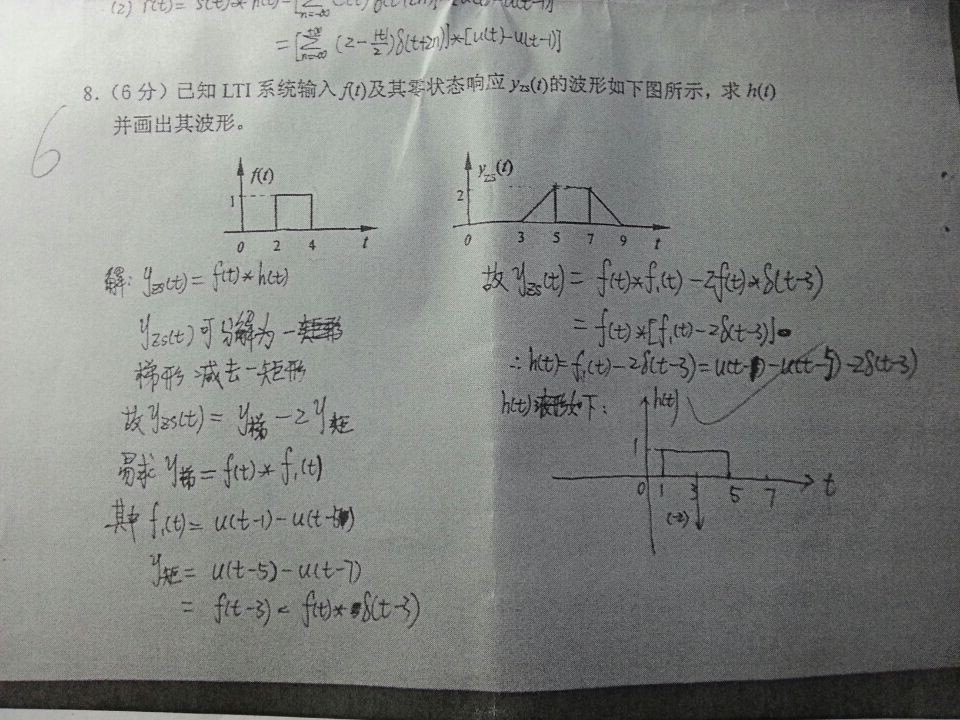 (2) r(t)= s(t)*h(t)=[∑ δ(t+2n)]*[u(t)-u(t-1)]
n=-∞
=[∑ (2-|t|/2)δ(t+2n)]*[u(t)-u(t-1)]
8.（6 分）已知 LTI 系统输入 f(t)及其零状态响应 yzs(t)的波形如下图所示，求 h(t)
并画出其波形。
6
f(t)
1
0 2 4 t
yzs(t)
2
0 3 5 7 9 t
解: yzs(t)= f(t)*h(t)
yzs(t)可分解为一
梯形减去一矩形
故yzs(t)= y梯-2y矩
易求 y梯=f(t)*f1(t)
其中 f1(t)= u(t-1)-u(t-5)
y矩= u(t-5)-u(t-7)
= f(t-3) = f(t)*δ(t-3)
故 yzs(t)= f(t)*f1(t)-2f(t)*δ(t-3)
= f(t)*[f1(t)-2δ(t-3)]
∴h(t)=f1(t)-2δ(t-3)=u(t-1)-u(t-5)-2δ(t-3)
h(t)波形如下:
h(t)
1
0 1 3 5 7 t
(-2)